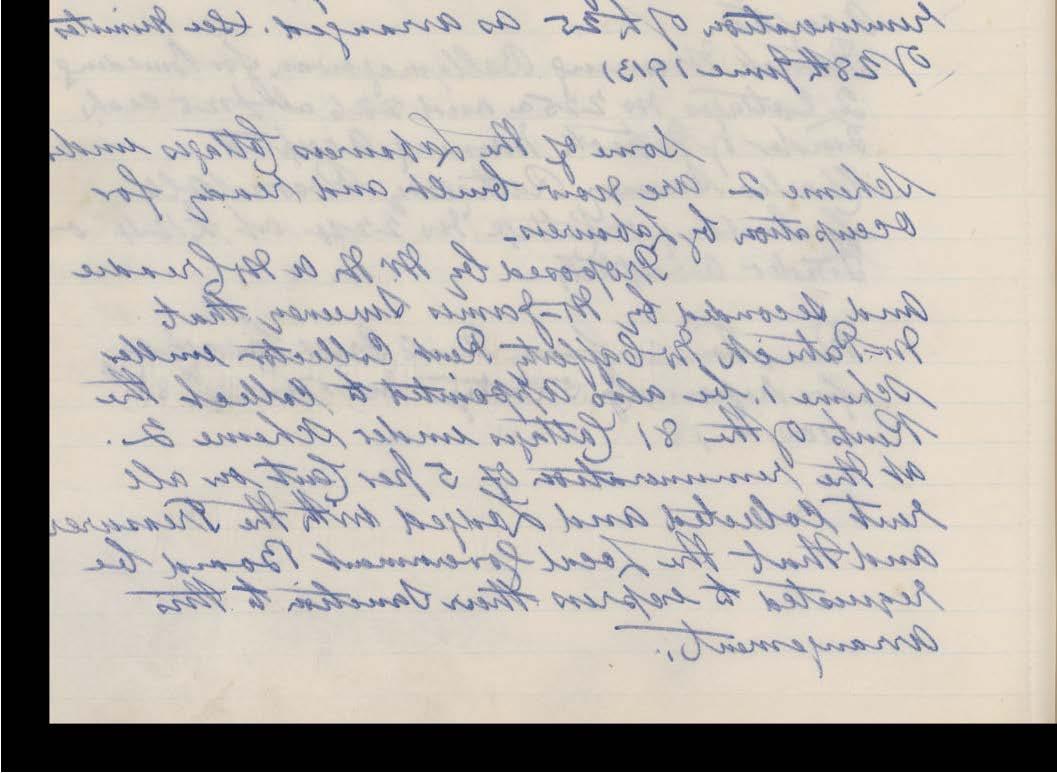 remuneration of £25 as arranged. See Minute
of 28th June 1913)
Some of the Labourers Cottages under
Scheme 2 are now built and ready for
occupation by labourers.
Proposed by Mr
and seconded by Mr James Sweeney that
Mr Patrick McCafferty, Rent Collector under
Scheme be also appointed to collect the
Rents of the 81 Cottages under Scheme 2.
at the remuneration of 5 per Cent on all
rent Collected and Lodged with the Treasurer
and that the Local Government Board be
requested to express their Sanction to this
arrangement.